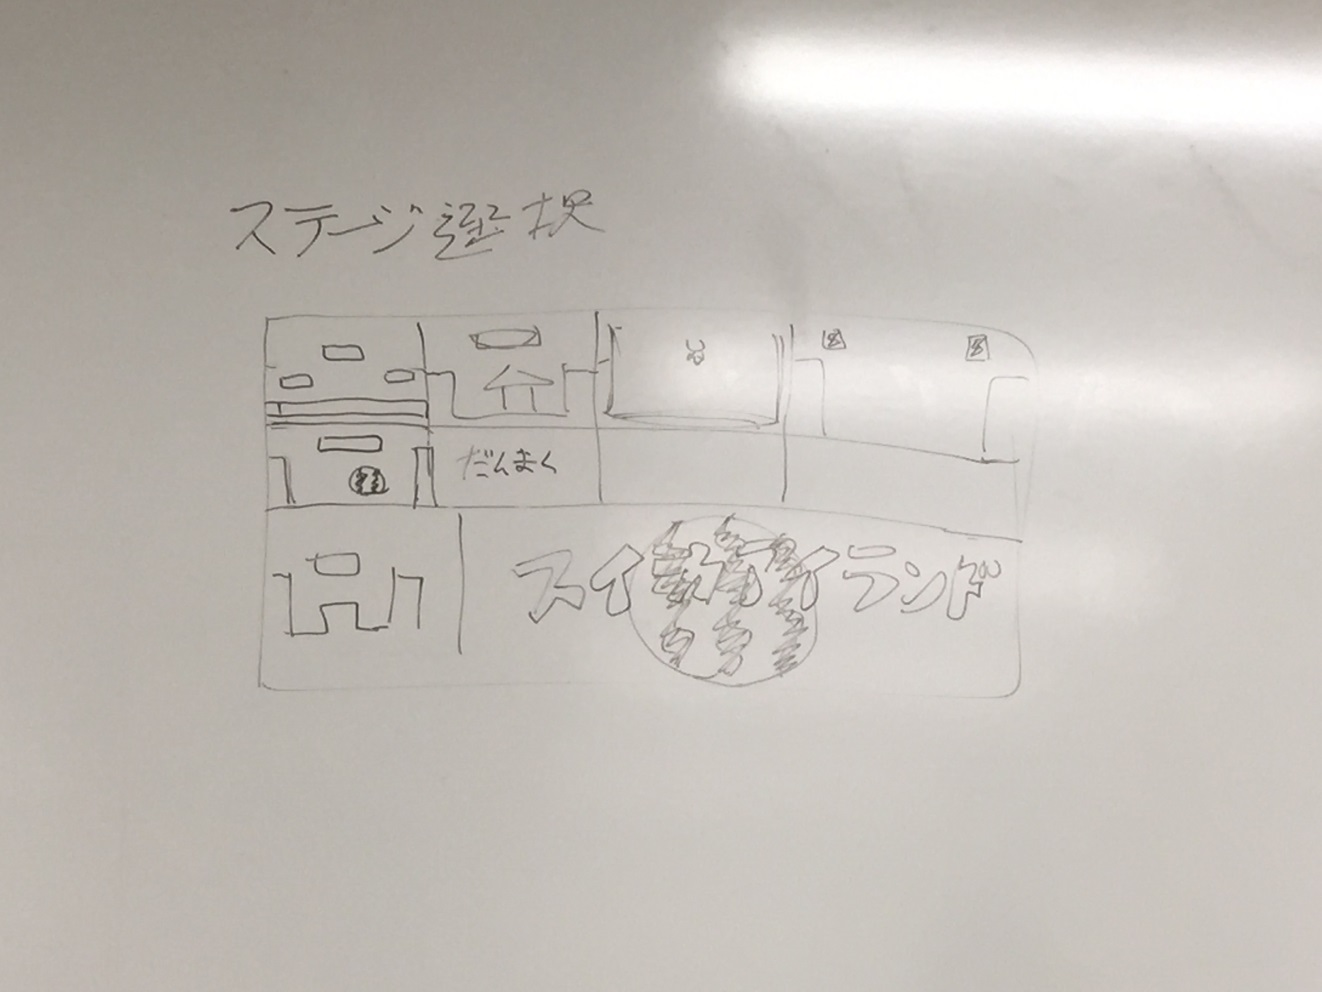 ステージ選択
だんまく
スイカアイランド